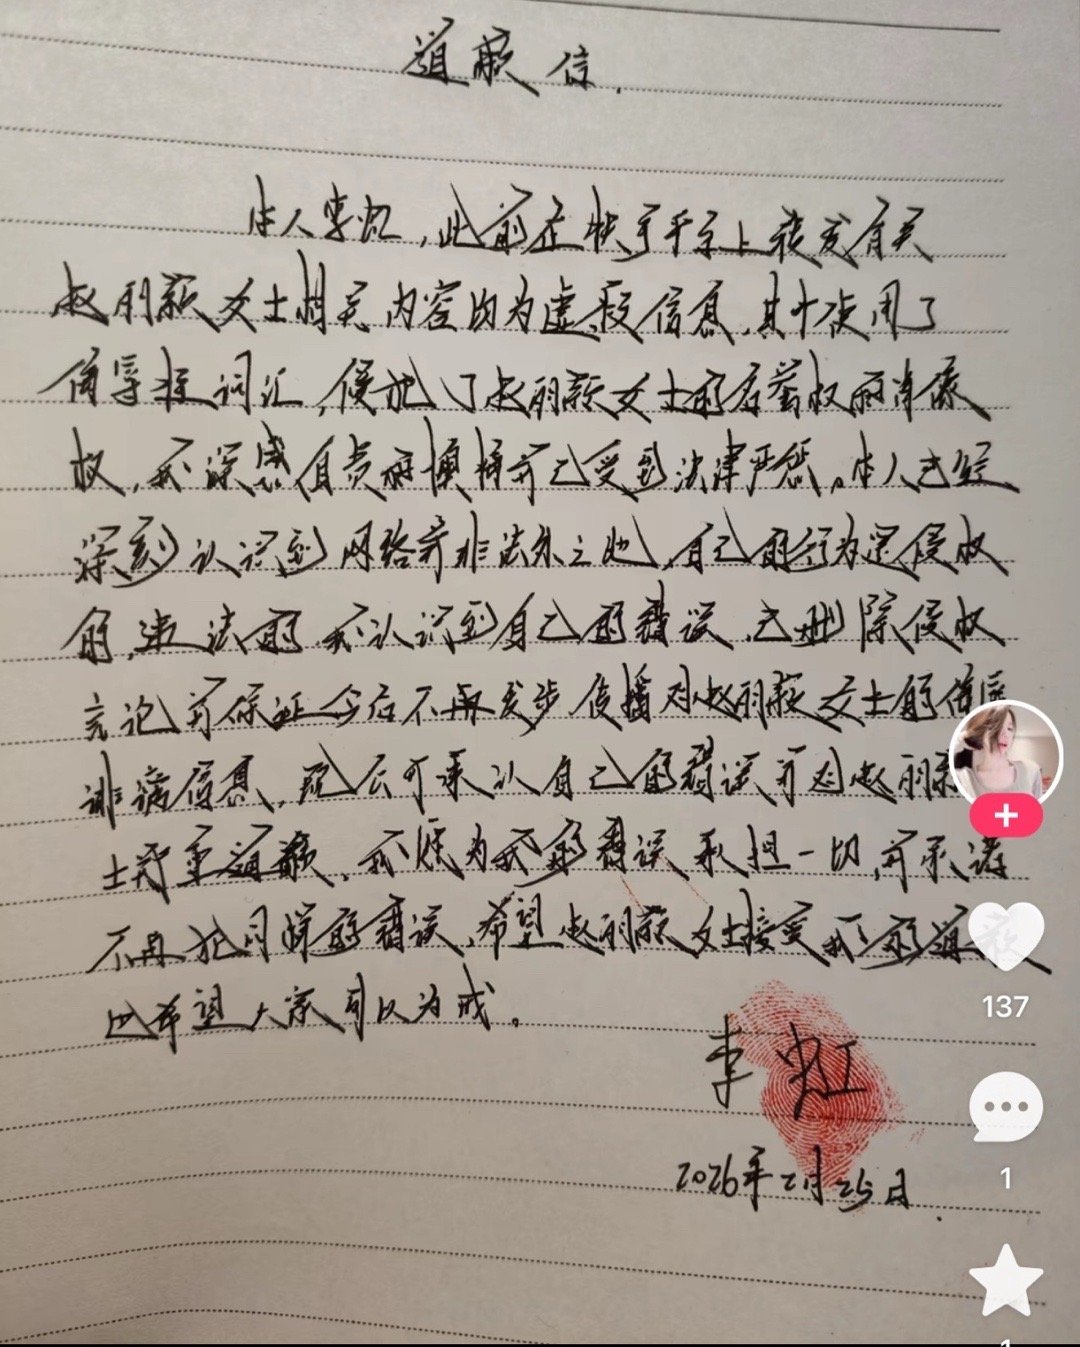 道歉信.
本人李虹,此前在快手平台上转发有关
赵丽颖女士相关内容均为虚假信息,其中使用了
侮辱性词汇,侵犯了赵丽颖女士的名誉权和肖像
权,我深感自责和懊悔并已受到法律严惩。本人已经
深刻认识到网络并非法外之地,自己的行为是侵权
的,违法的,我认识到自己的错误,已删除侵权
言论并保证今后不再发步传播对赵丽颖女士的侮辱
诽谤信息,现公开承认自己的错误并对赵丽颖
士郑重道歉,我愿为我的错误承担一切,并承诺
不再犯同样的错误,希望赵丽颖女士接受我的道歉
也希望大家引以为戒。
李虹
2026年2月25日.
137
1